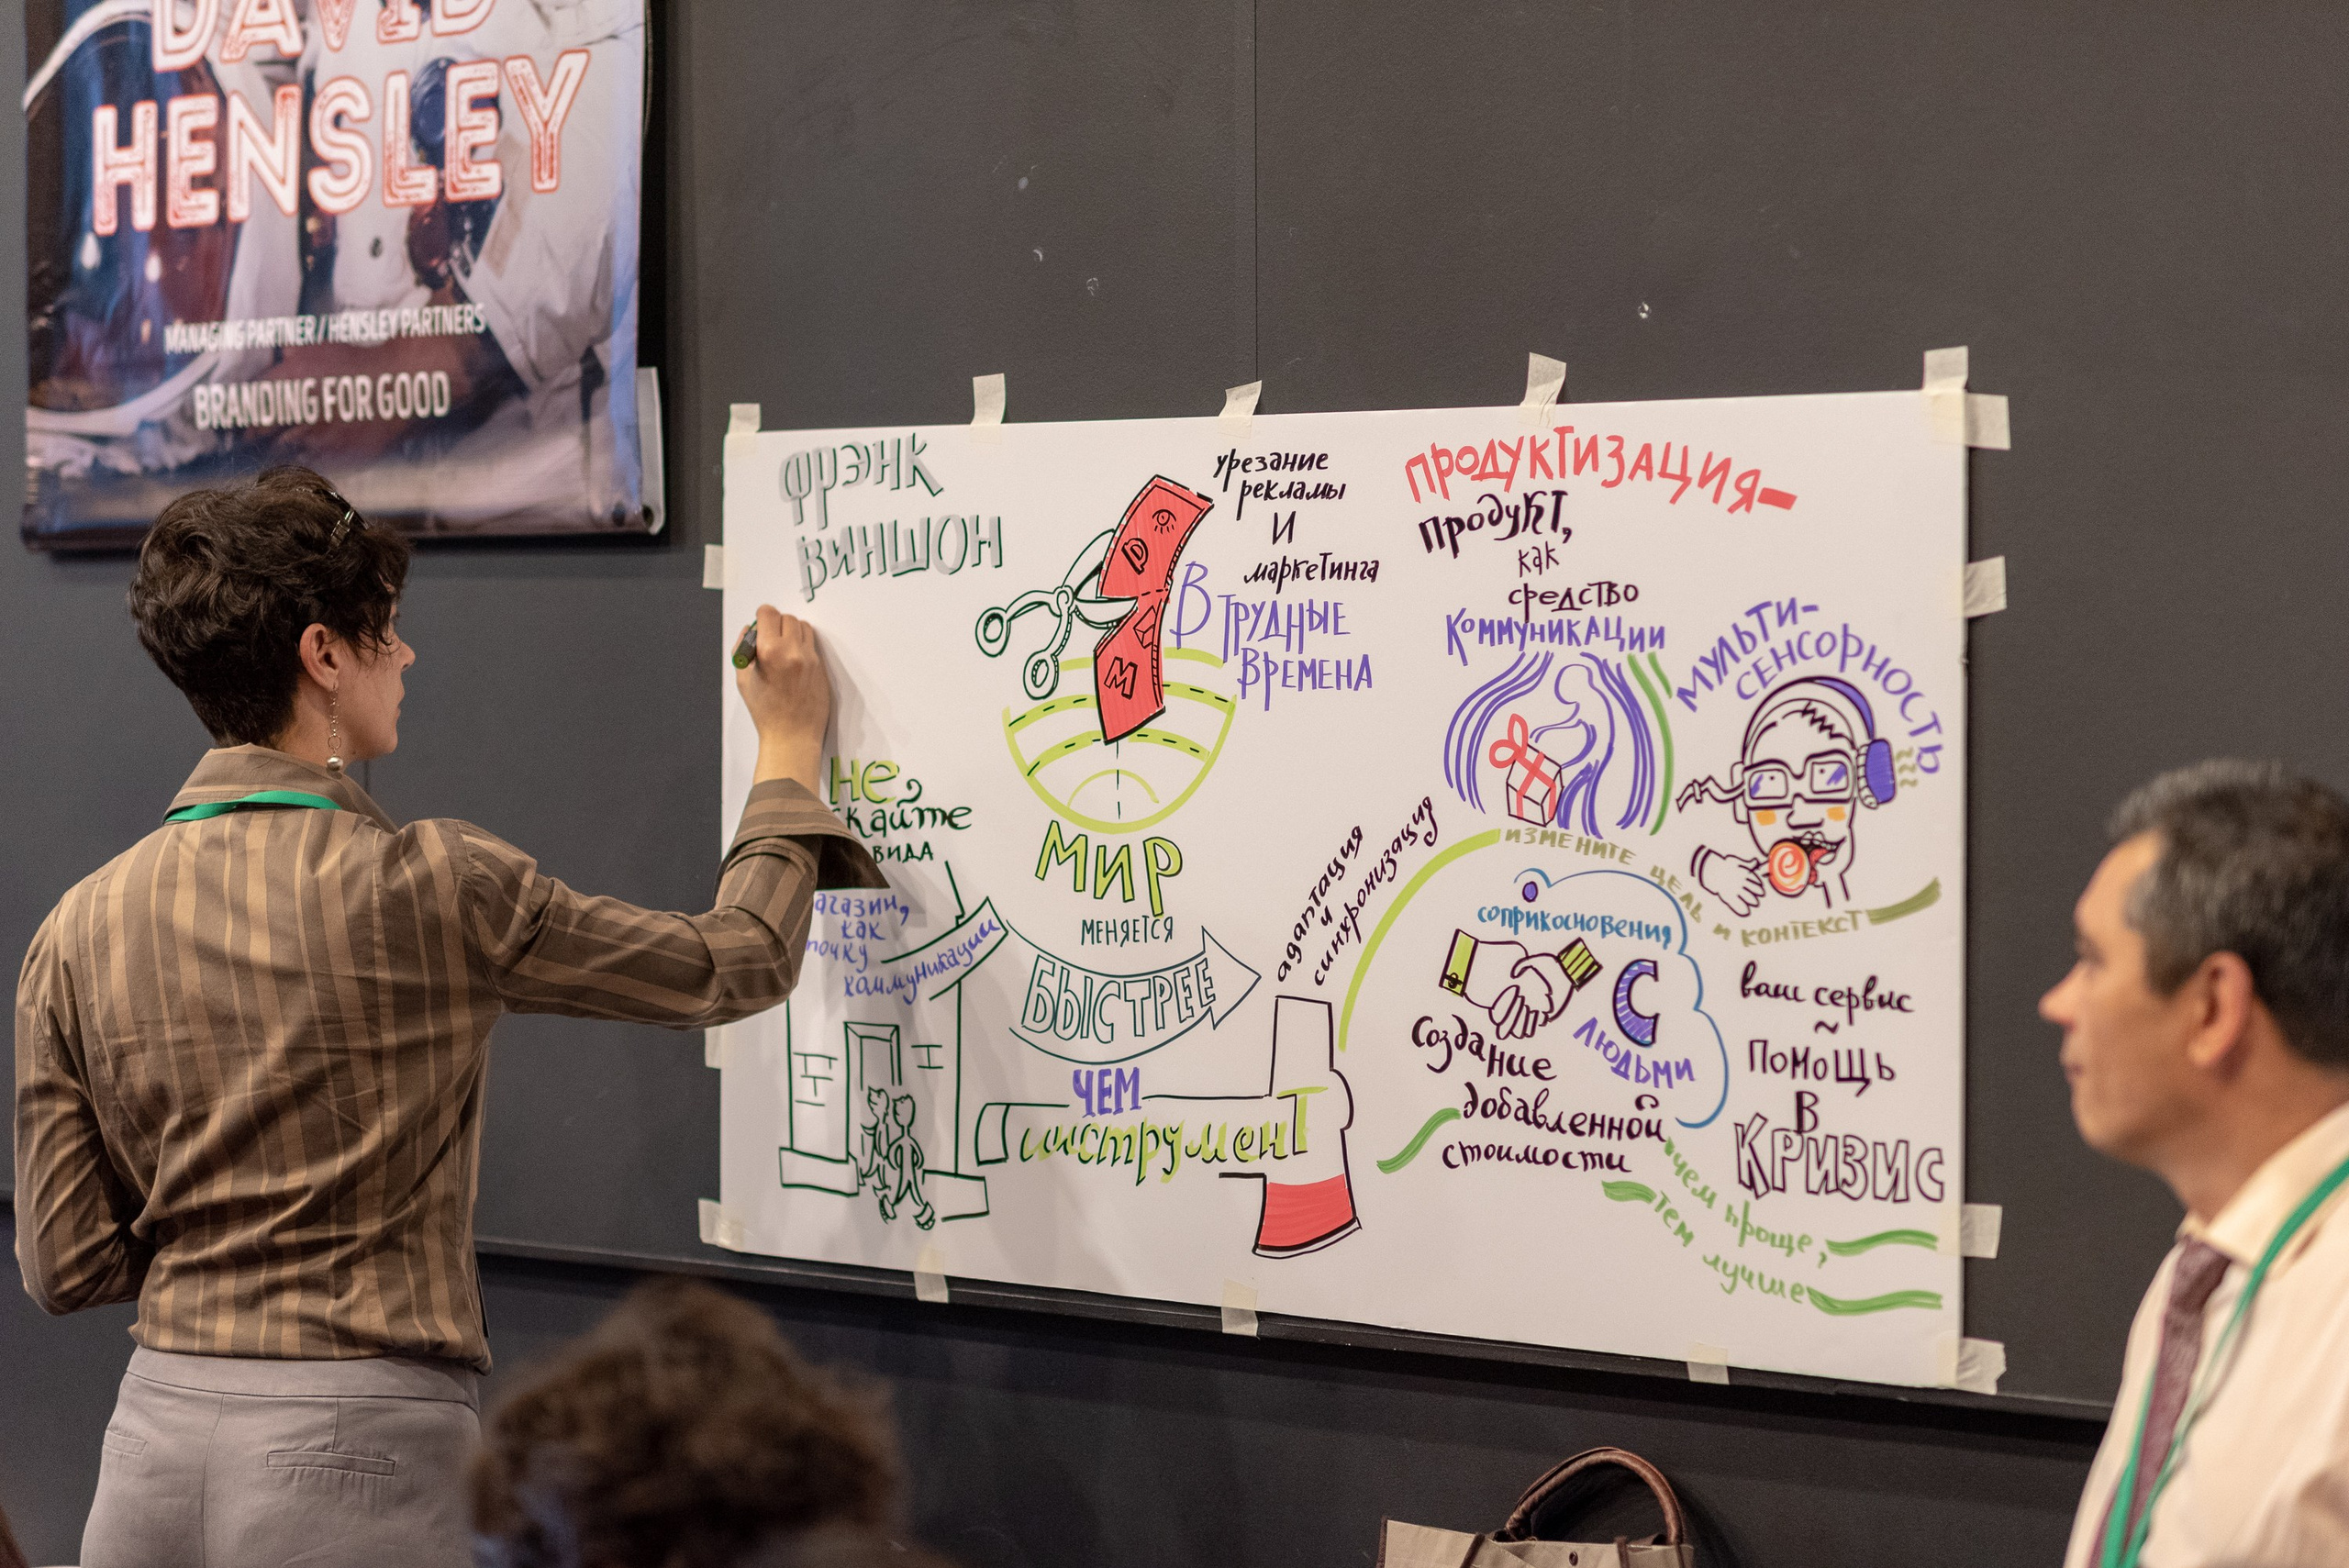 DAVID
HENSLEY
MANAGING PARTNER / HENSLEY PARTNERS
BRANDING FOR GOOD
ФРЭНК
ВИНШОН
D
M
урезание
рекламы
И
маркетинга
В ТРУДНЫЕ
ВРЕМЕНА
МИР
МЕНЯЕТСЯ
БЫСТРЕЕ
ЧЕМ
инструмент
не
вида
как
точку
коммуникации
адаптация
и
синхронизация
ПРОДУКТИЗАЦИЯ-
продукт,
как
средство
КОММУНИКАЦИИ
МУЛЬТИ-
СЕНСОРНОСТЬ
ИЗМЕНИТЕ ЦЕЛЬ И КОНТЕКСТ
соприкосновения
С
ЛЮДЬМИ
Создание
добавленной
стоимости
ваш сервис
~
ПОМОЩЬ
В
КРИЗИС
чем проще,
тем лучше